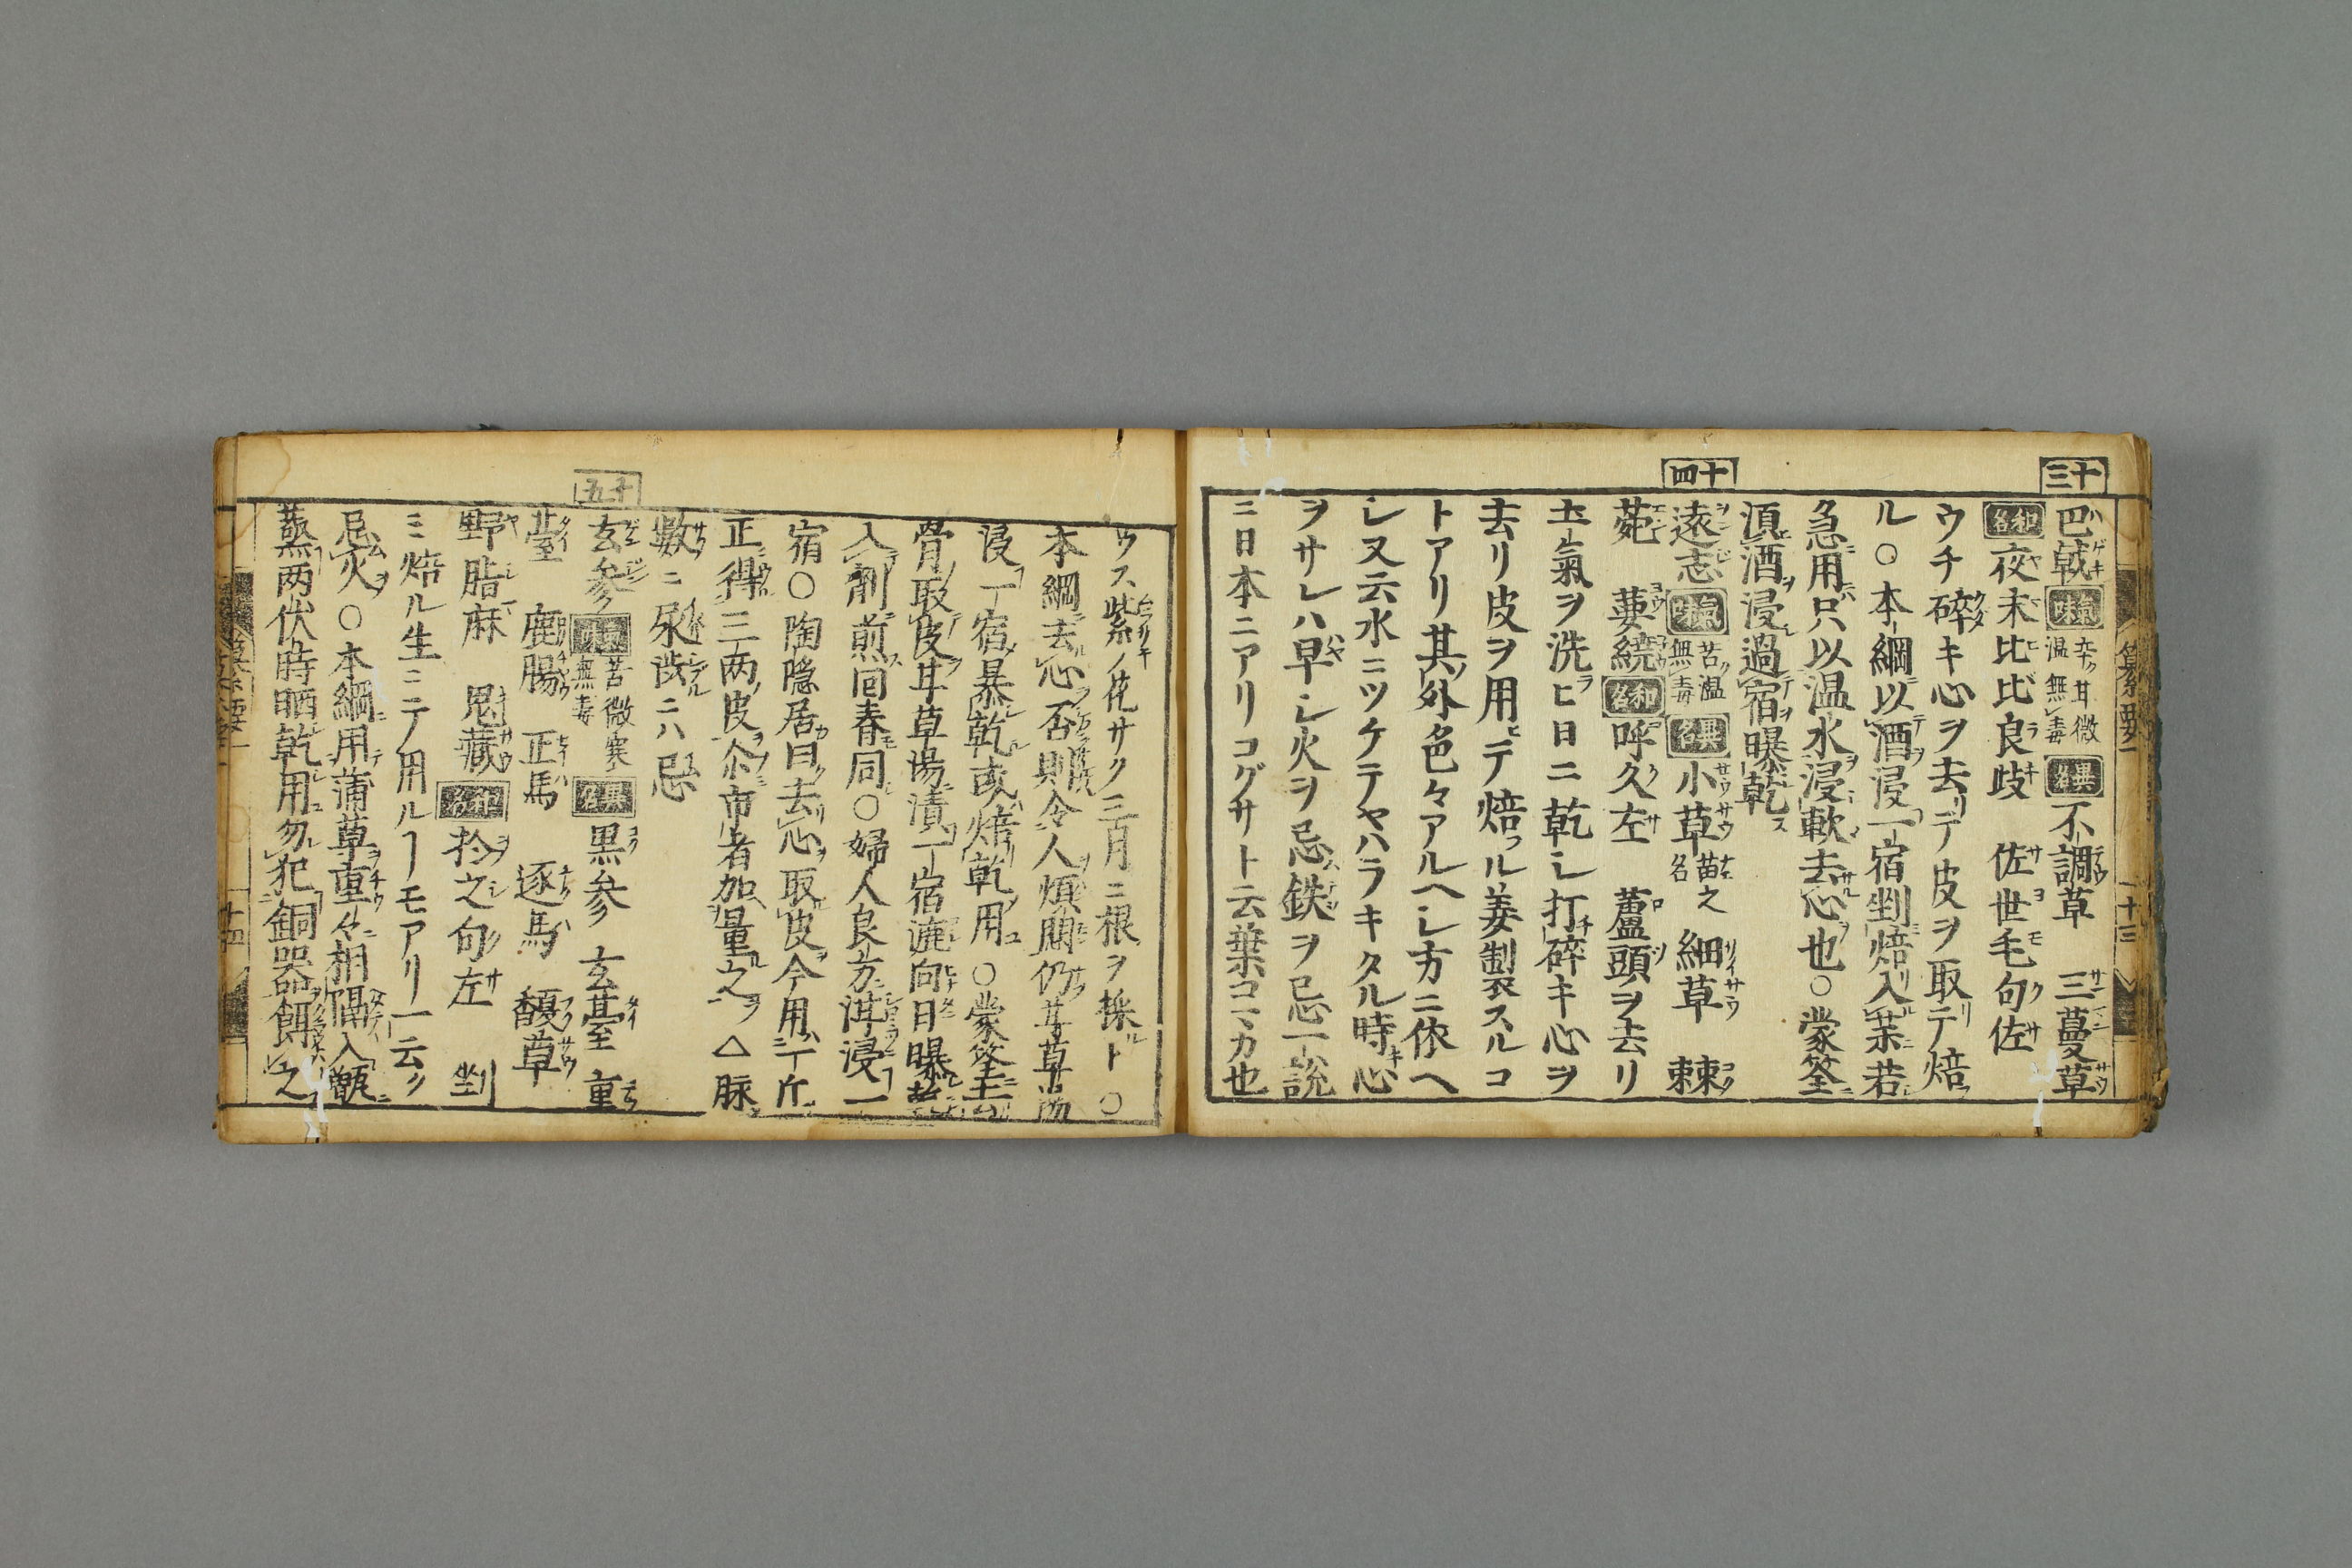 十三
巴戟 氣味 辛甘微温無毒 異名 不凋草 三蔓草
和名 夜末比比良歧 佐世毛句佐
ウチ碎キ心ヲ去リテ皮ヲ取テ焙
ル○本綱以酒浸一宿剉焙入藥若
急用只以温水浸軟去心也○蒙筌
須酒浸過宿曝乾
十四
遠志 氣味 苦温無毒 異名 小草 苗之名 細草 棘
菀 葽繞 和名 呼久左 蘆頭ヲ去リ
土氣ヲ洗ヒ日ニ乾シ打碎キ心ヲ
去リ皮ヲ用テ焙ル姜製スルコ
トアリ其外色々アルヘシ方ニ依ヘ
シ又云水ニツケテヤハラキタル時心
ヲサレハ早シ火ヲ忌鉄ヲ忌一説
ニ日本ニアリコグサト云葉コマカ也
ウス紫ノ花サク三月ニ根ヲ採ト○
本綱去心否則令人煩悶仍甘草湯
浸一宿暴乾或焙乾用○蒙筌云
骨取皮甘草湯漬一宿漉向日曝乾
入劑煎回春同○婦人良方洱浸一
宿○陶隠居曰去心取皮今用一斤
正得三两皮尓市者加量之△脉
數ニ尿澁ニハ忌
十五
玄参 氣味 苦微寒無毒 異名 黒参 玄臺 重
臺 鹿腸 正馬 逐馬 馥草
野脂麻 鬼藏 和名 於之句左 剉
ミ焙ル生ニテ用ルヿモアリ一云ク
忌火○本綱用蒲草重々相隔入甑
蒸两伏時晒乾用勿犯銅器餌之
纂要一 十三
十四